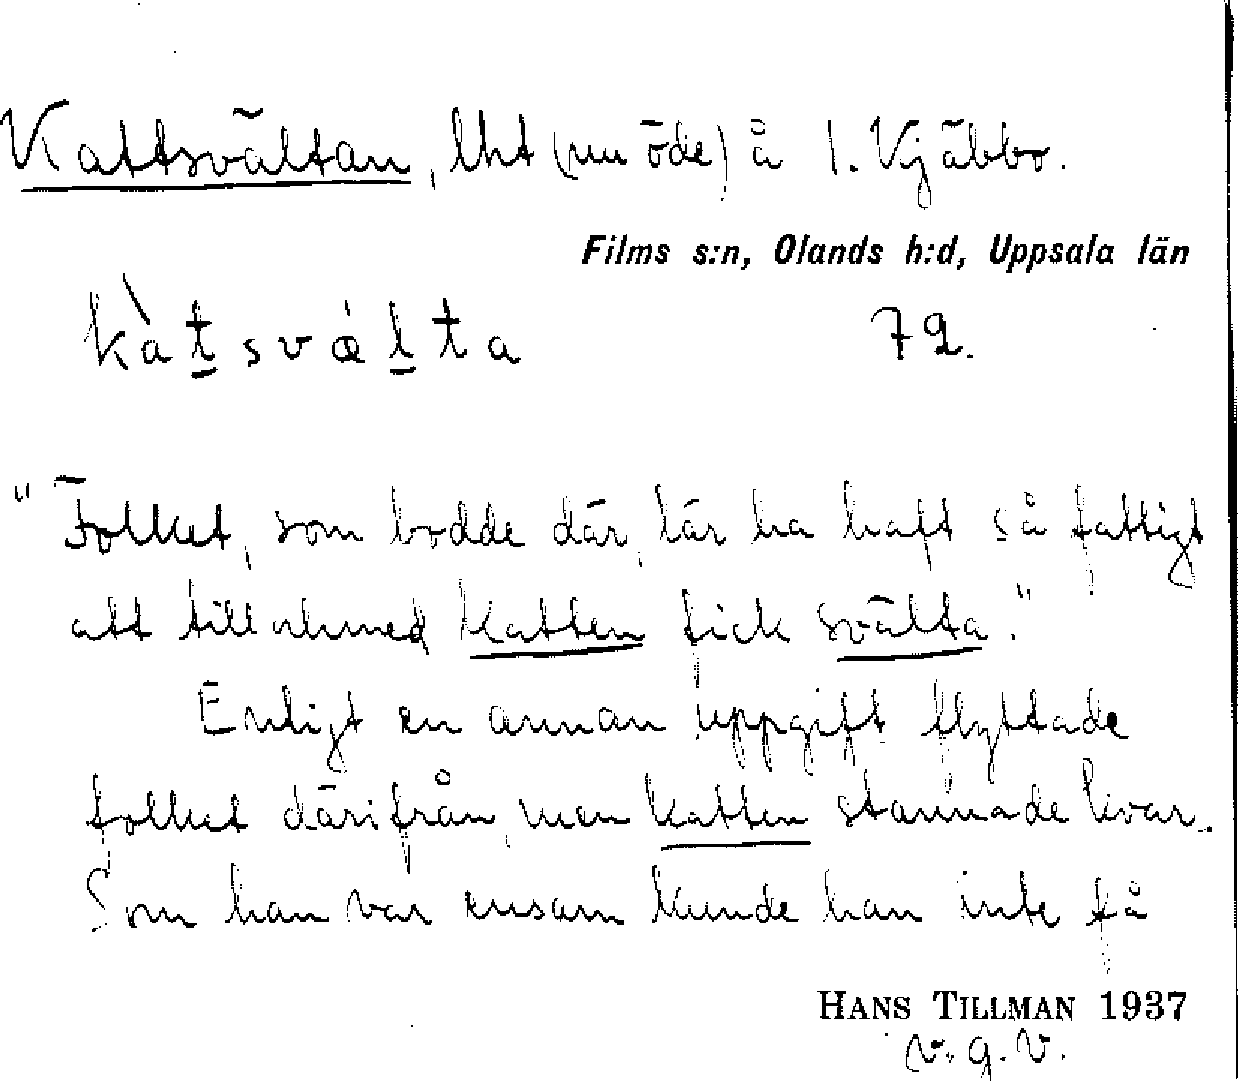 Kattsvältan, lht (nu öde) å 1. Vjäbbo.
Films s:n, Olands h:d, Uppsala län
kàtsvælta 72.
"Folket, som bodde där, lär ha haft så fattigt
att till och med katten fick svälta."
Enligt en annan uppgift flyttade
folket därifrån, men katten stannade kvar.
Som han var ensam kunde han inte få
HANS TILLMAN 1937
v.g.V.